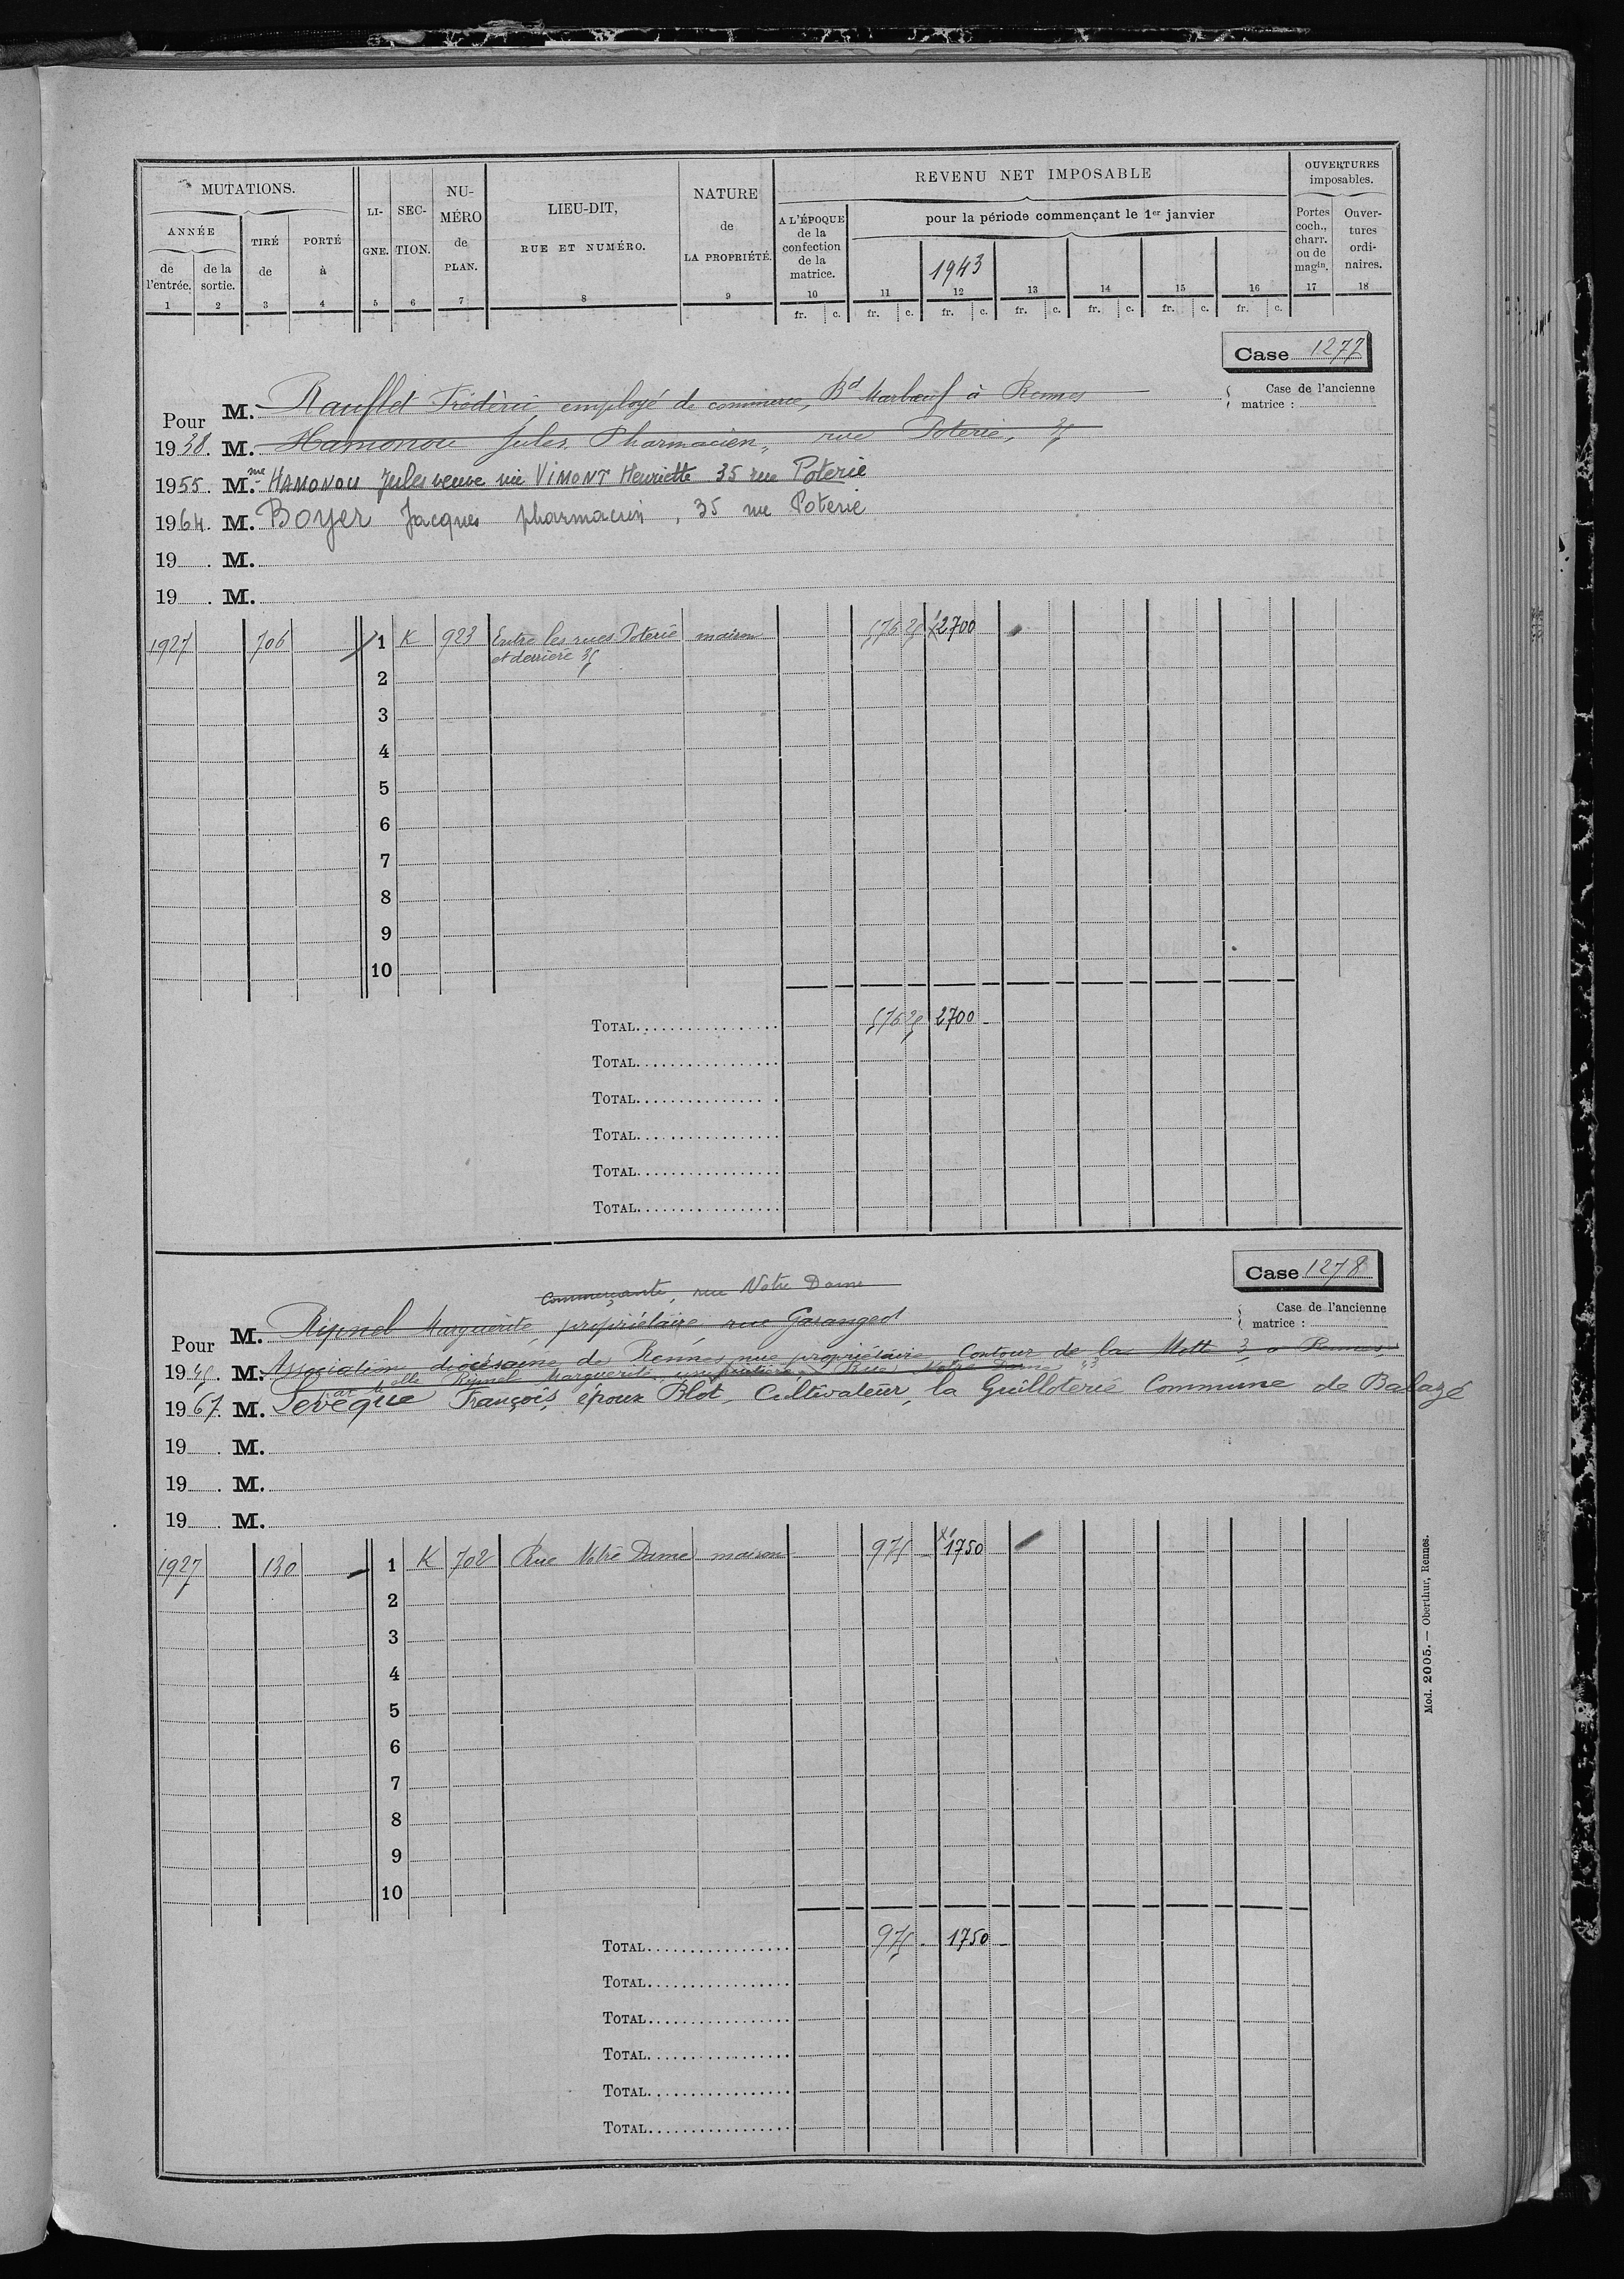 MUTATIONS.
ANNÉE
de l'entrée.
de la sortie.
TIRÉ de
PORTÉ à
LI-GNE.
SEC-TION.
NU-MÉRO de PLAN.
LIEU-DIT, RUE ET NUMÉRO.
NATURE de LA PROPRIÉTÉ.
REVENU NET IMPOSABLE
A L'ÉPOQUE de la confection de la matrice.
pour la période commençant le 1er janvier
1943
OUVERTURES imposables.
Portes coch., charr. ou de magin.
Ouver-tures ordi-naires.
1 2 3 4 5 6 7 8 9 10 11 12 13 14 15 16 17 18
fr. c. fr. c. fr. c. fr. c. fr. c. fr. c. fr. c.
Case 1277
Case de l'ancienne matrice :
Pour M. Rauflet Frédéric, employé de commerce, Bd Marbœuf à Rennes
1938. M. Hamonou Jules Pharmacien, rue Poterie, 35
1955. Mme HAMONOU Jules veuve née VIMONT Henriette 35 rue Poterie
1964. M. Boyer Jacques pharmacien, 35 rue Poterie
19 . M.
19 . M.
1927 706 1 K 923 Entre les rues Poterie maison 576 25 2700
et derrière 35
2
3
4
5
6
7
8
9
10
TOTAL 576 25 2700
TOTAL
TOTAL
TOTAL
TOTAL
TOTAL
Case 1278
Case de l'ancienne matrice :
Commerçante, rue Notre Dame
Pour M. Marguerite, propriétaire, rue Garangeot
1945. M. Association diocésaine de Rennes nue propriétaire Contour de la Mott 3 a Rennes
par Melle Marguerite, usufruitière Rue Notre Dame 23
1967. M. Levêque François, époux Blot, Cultivateur, la Guilloterie Commune de Balazé
19 . M.
19 . M.
19 . M.
1927 130 1 K 702 Rue Notre Dame maison 975 1750
2
3
4
5
6
7
8
9
10
TOTAL 975 1750
TOTAL
TOTAL
TOTAL
TOTAL
TOTAL
Mod. 2005. — Oberthur, Rennes.